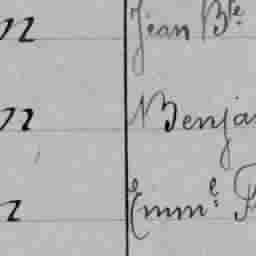 72 Jean Bte
72 Benja
2 Emm.e